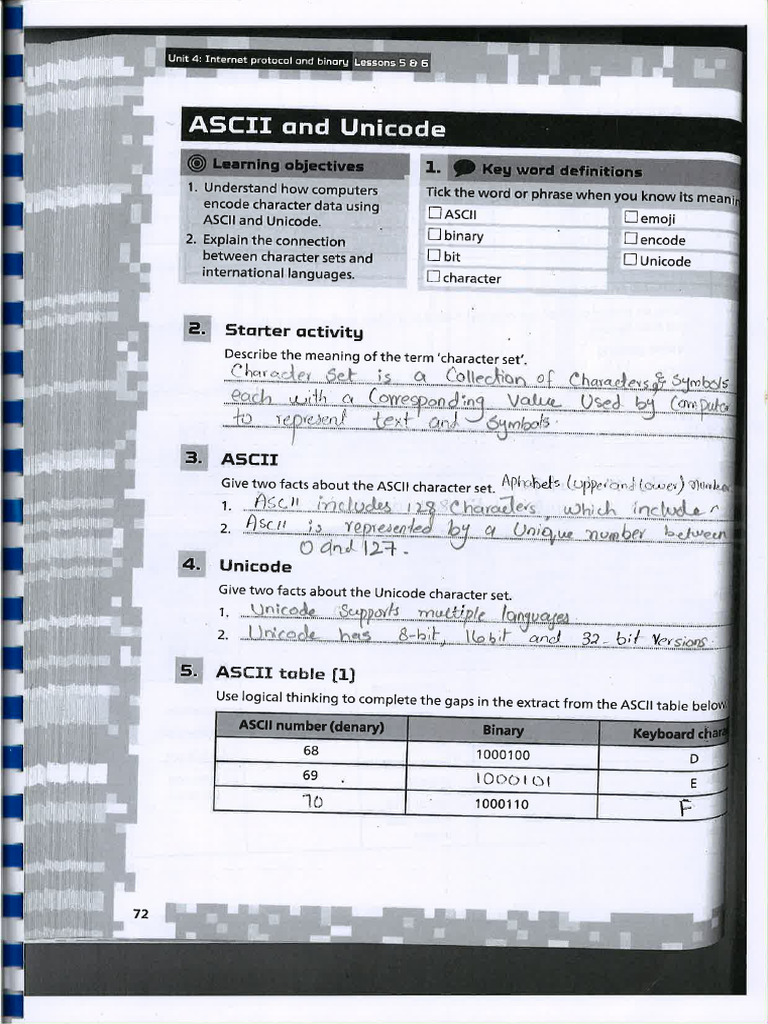 Unit 4: Internet protocol and binary Lessons 5 & 6
ASCII and Unicode
Learning objectives
1. Understand how computers
encode character data using
ASCII and Unicode.
2. Explain the connection
between character sets and
international languages.
1. Key word definitions
Tick the word or phrase when you know its meanin
ASCII
binary
bit
character
emoji
encode
Unicode
2. Starter activity
Describe the meaning of the term 'character set'.
Character Set is a Collection of Characters & Symbols
each with a Corresponding Value Used by Computer
to represent text and Symbols.
3. ASCII
Give two facts about the ASCII character set. Aphabets (upper and lower) Number
1. ASCII includes 128 Characters, which include
2. ASCII is represented by a Unique number between
0 and 127.
4. Unicode
Give two facts about the Unicode character set.
1. Unicode Supports multiple languages
2. Unicode has 8-bit, 16bit and 32-bit Versions.
5. ASCII table (1)
Use logical thinking to complete the gaps in the extract from the ASCII table below
ASCII number (denary) Binary Keyboard chara
68 1000100 D
69 1000101 E
70 1000110 F
72